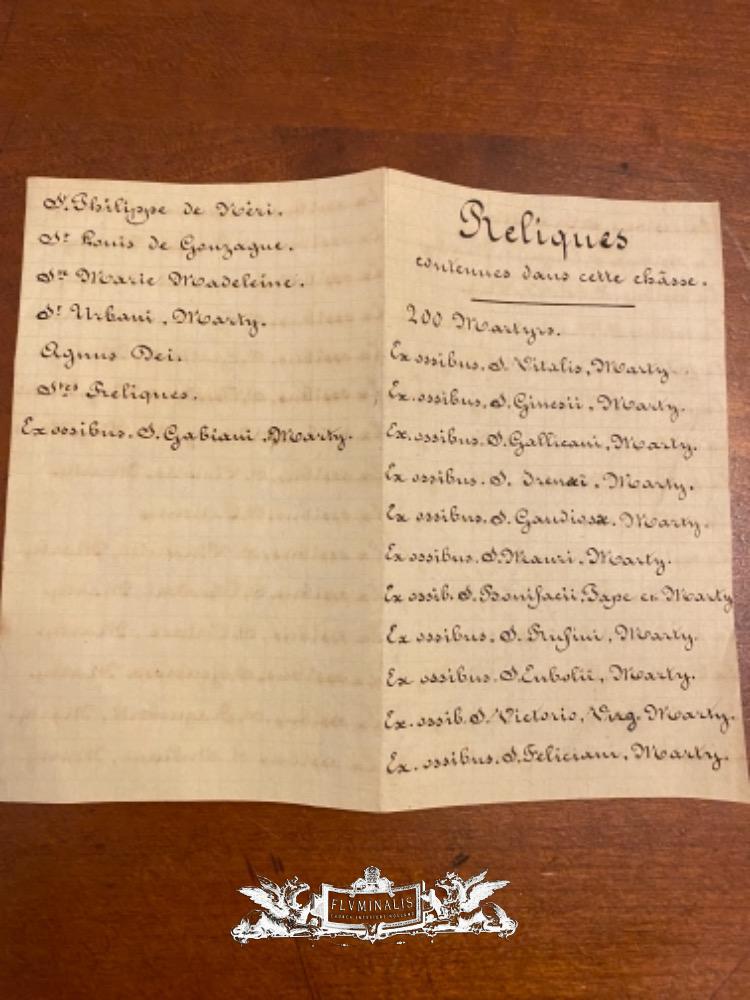 St. Philippe de Néri.
St Louis de Gonzague.
Ste Marie Madeleine.
St Urbani, Marty.
Agnus Dei.
Stes Reliques.
Ex ossibus. S. Gabiani. Marty.
Reliques
contenues dans cette châsse.
200 Martyrs.
Ex ossibus. S. Vitalis, Marty.
Ex. ossibus. S. Ginesii, Marty.
Ex. ossibus. S. Gallicani, Marty.
Ex ossibus. S. Irenæi. Marty.
Ex ossibus. S. Marty.
Ex ossibus. S. Mauri. Marty.
Ex ossib. S. Bonifacii. Pape et Marty
Ex ossibus. S. Rufini, Marty.
Ex ossibus. S. Eubolii, Marty.
Ex. ossib. S. Victorio, Virg. Marty.
Ex. ossibus. S. Feliciani, Marty.
FLVMINALIS
CHURCH INTERIORS HOLLAND